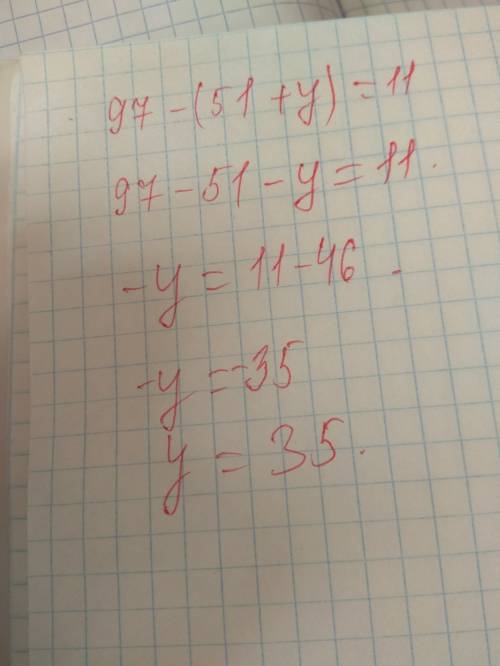 97 - (51 + y) = 11
97 - 51 - y = 11.
-y = 11 - 46.
-y = -35
y = 35.